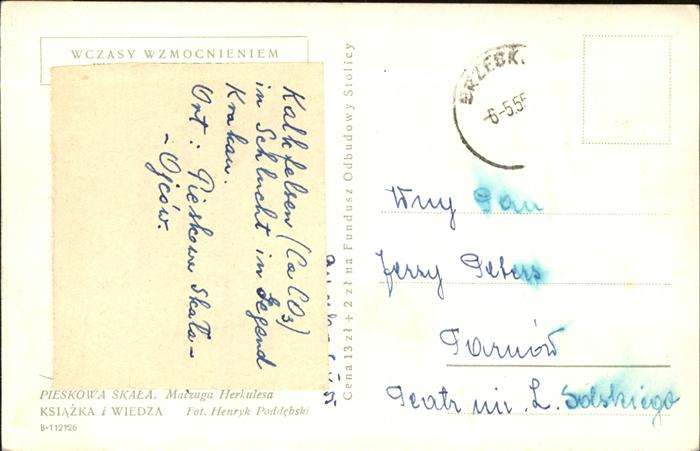 WCZASY WZMOCNIENIEM
Kalkfelsen (CaCO3)
in Schlucht in Gegend
Krakau.
Ort: Pieskowa Skała-
- Ojców.
PIESKOWA SKAŁA. Maczuga Herkulesa
KSIĄŻKA i WIEDZA Fot. Henryk Poddębski
B-112126
Cena 13 zł + 2 zł na Fundusz Odbudowy Stolicy
BRZESK
-6-5.55
Wny Pan
Jerzy Peters
Tarnów
Teatr im. L. Solskiego